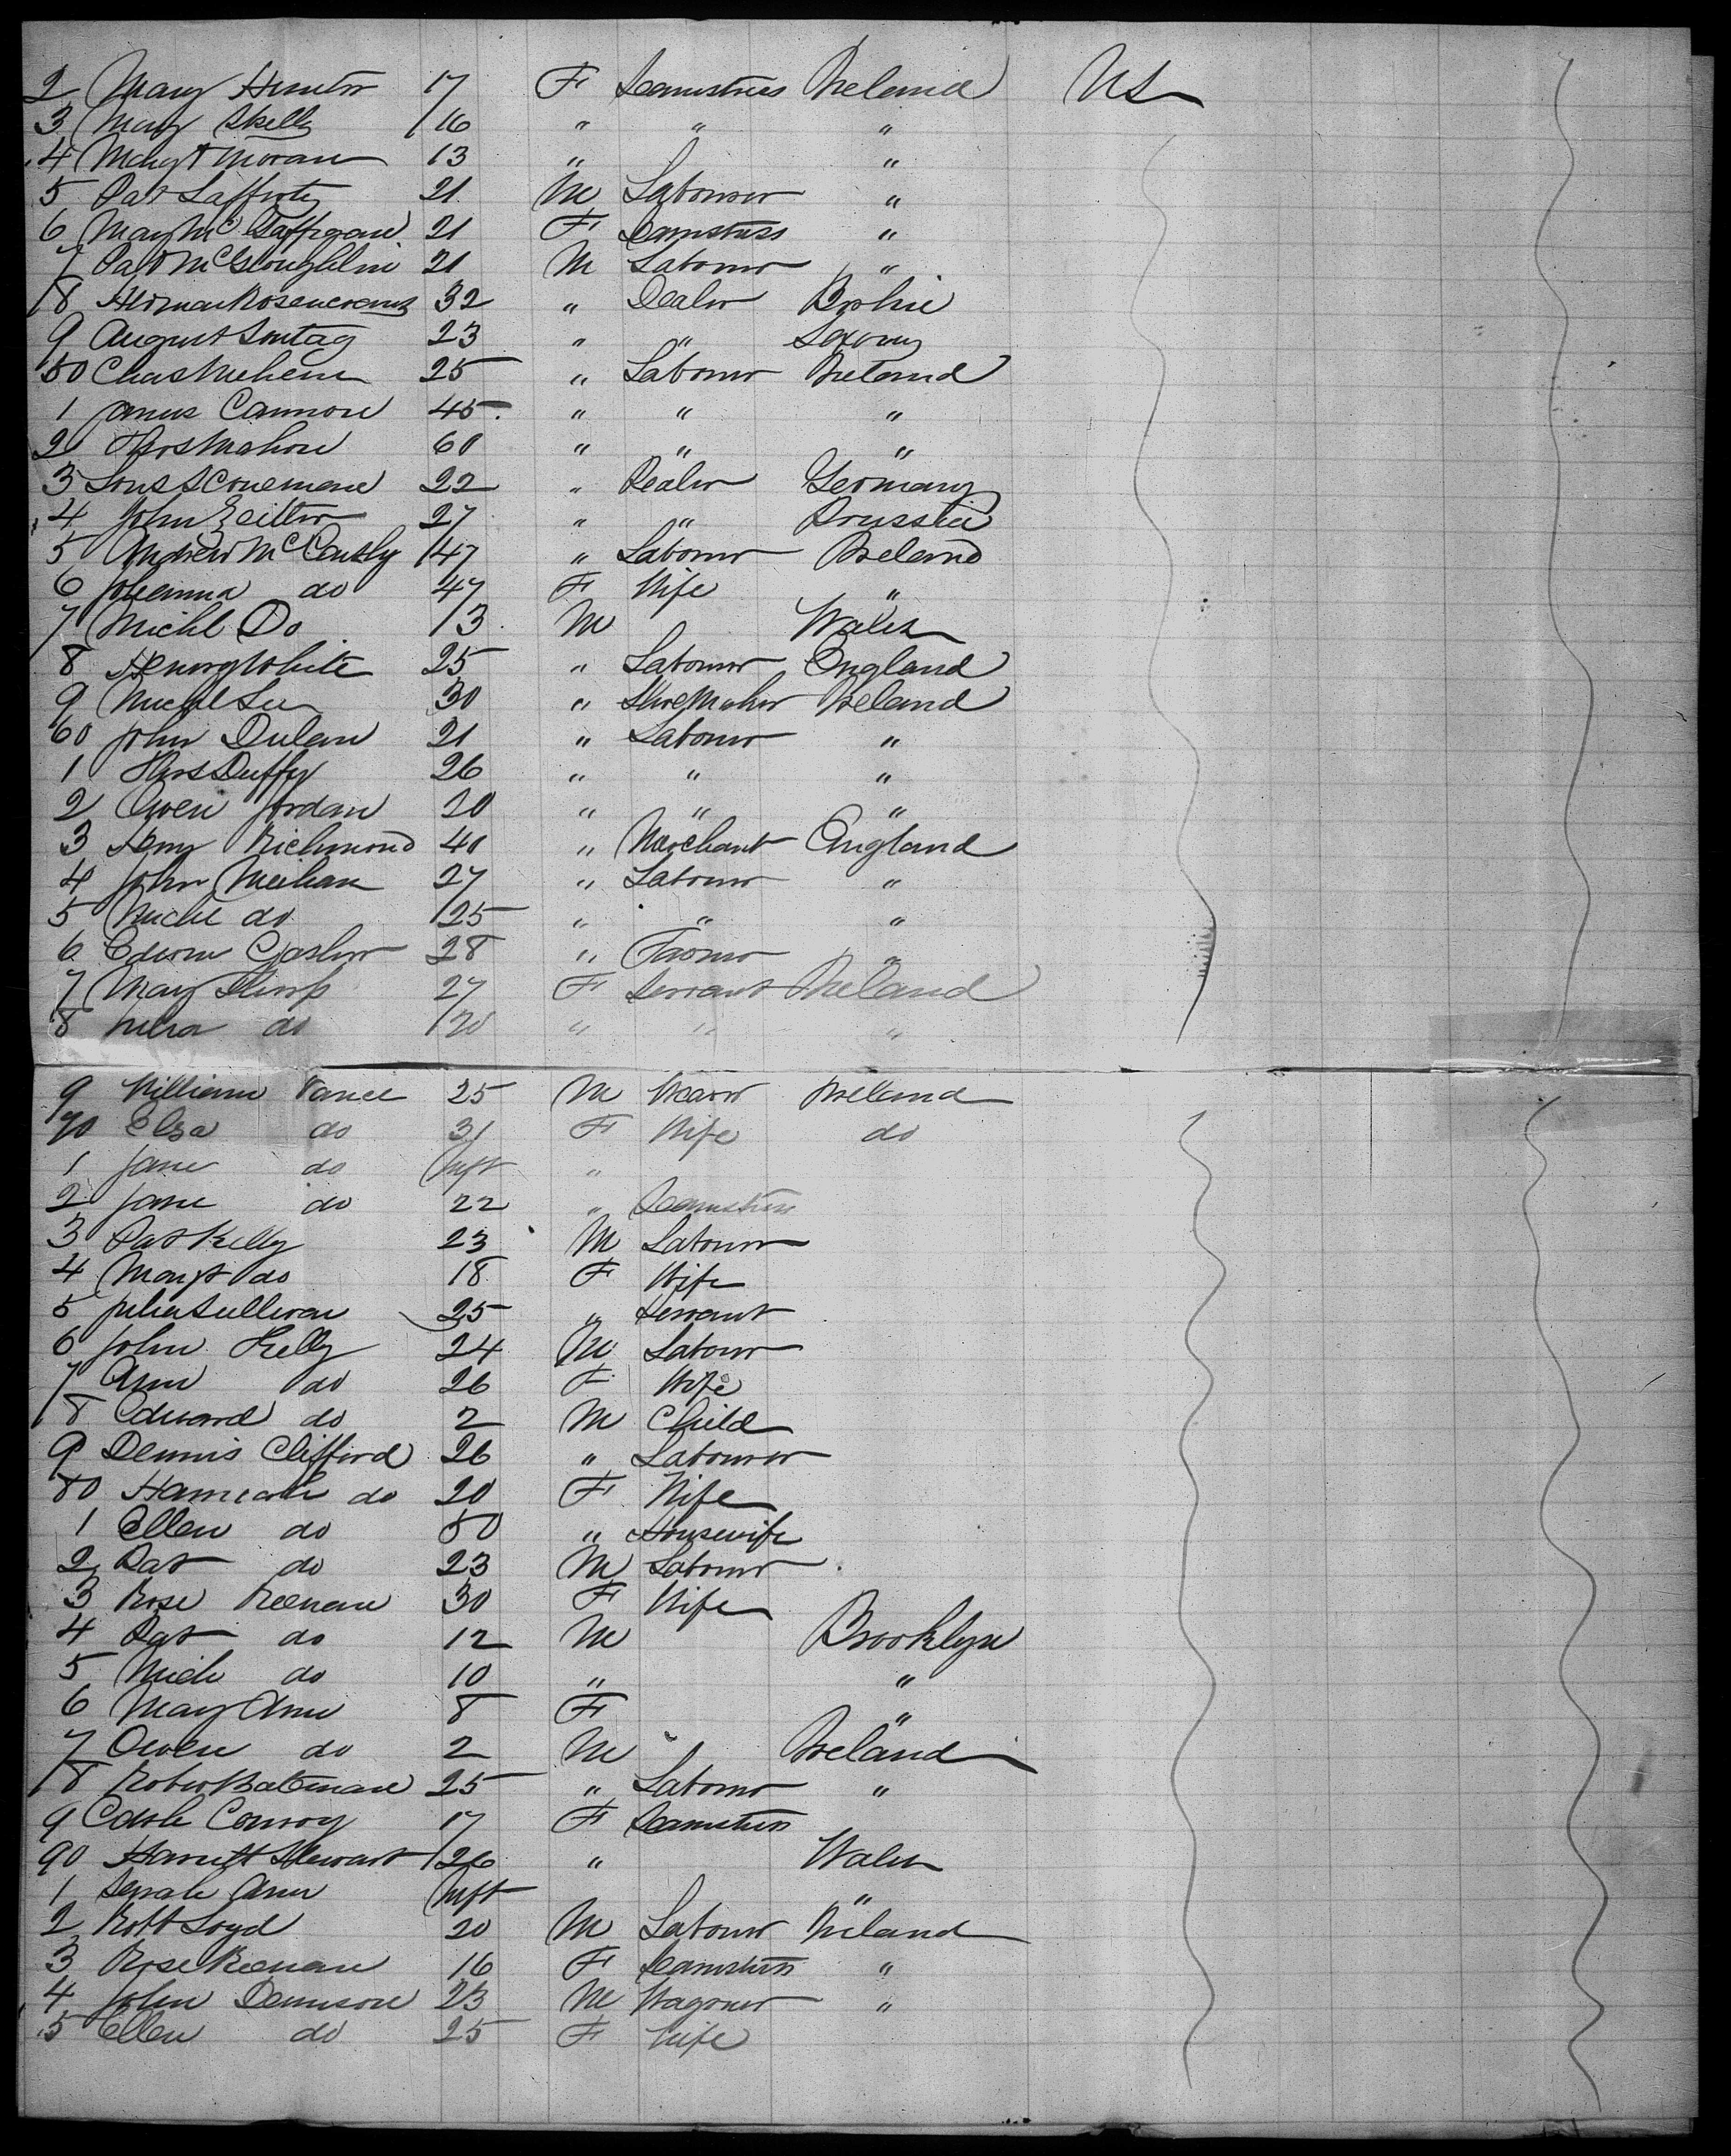 2 Mary Hunter 17 F Seamstress Ireland US
3 Mary Skelly 16 " " "
4 Margt Moran 13 " "
5 Pat Lafferty 21 M Labourer "
6 Mary Mc Gaffigan 21 F Seamstress "
7 Pat McGloughlin 21 M Labourer "
8 Herman Rosencranz 32 " Dealer
9 August Sontag 23 " " Saxony
50 Chas Mehen 25 " Labourer Ireland
1 James Cannon 45 " " "
2 Thos Mahon 60 " " "
3 22 " Dealer Germany
4 John Zeitler 27 " " Prussia
5 Andrew McCausly 47 " Labourer Ireland
6 Johanna do 47 F Wife "
7 Michl Do 13 M Wales
8 Henry White 25 " Labourer England
9 Michl Lee 30 " Shoemaker Ireland
60 John Dulan 21 " Labourer "
1 Thos Duffy 26 " " "
2 Owen Jordan 20 " " "
3 Henry Richmond 40 " Merchant England
4 John Meehan 27 " Labourer "
5 Michl do 25 " " "
6 Edwin 28 " Farmer "
7 Mary 27 F Servant Ireland
8 do 20 " " "
9 William Vance 25 M Weaver Ireland
70 Elza do 31 F Wife do
1 Jane do Inft "
2 Jane do 22 " Seamstress
3 Pat Kelly 23 M Labourer
4 Margt do 18 F Wife
5 Julia Sullivan 25 " Servant
6 John Kelly 24 M Labour
7 Ann do 26 F Wife
8 Edward do 2 M Child
9 Dennis Clifford 26 " Labourer
80 Hannah do 20 F Wife
1 Ellen do 50 " Housewife
2 Pat do 23 M Labourer
3 Rose Keenan 30 F Wife
4 Pat do 12 M Brooklyn
5 Mich do 10 " "
6 Mary Ann 8 F "
7 Owen do 2 M Ireland
8 Robert Bateman 25 " Labourer "
9 Conroy 17 F Seamstress
90 Harriett Stewart 26 " Wales
1 Sarah Ann Inft "
2 Robt Loyd 20 M Labourer Ireland
3 Rose Keenan 16 F Seamstress "
4 John Dennison 23 M Wagoner "
5 Ellen do 25 F Wife